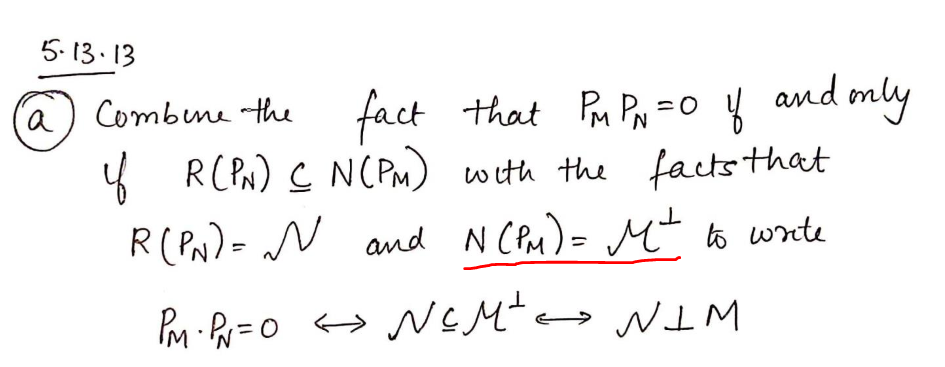 5.13.13
(a) Combine the fact that P_M P_N = 0 if and only
if R(P_N) ⊆ N(P_M) with the facts that
R(P_N) = 𝒩 and N(P_M) = ℳ^⊥ to write
P_M · P_N = 0 ⟷ 𝒩 ⊆ ℳ^⊥ ⟷ 𝒩 ⊥ M